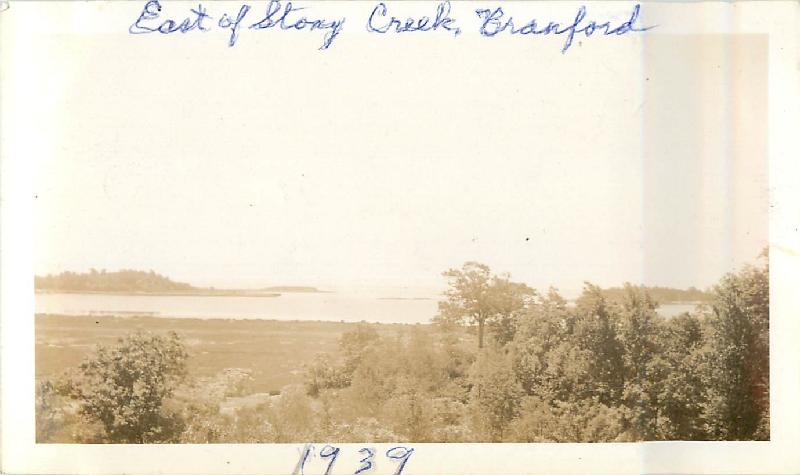 East of Stony Creek, Branford
1939